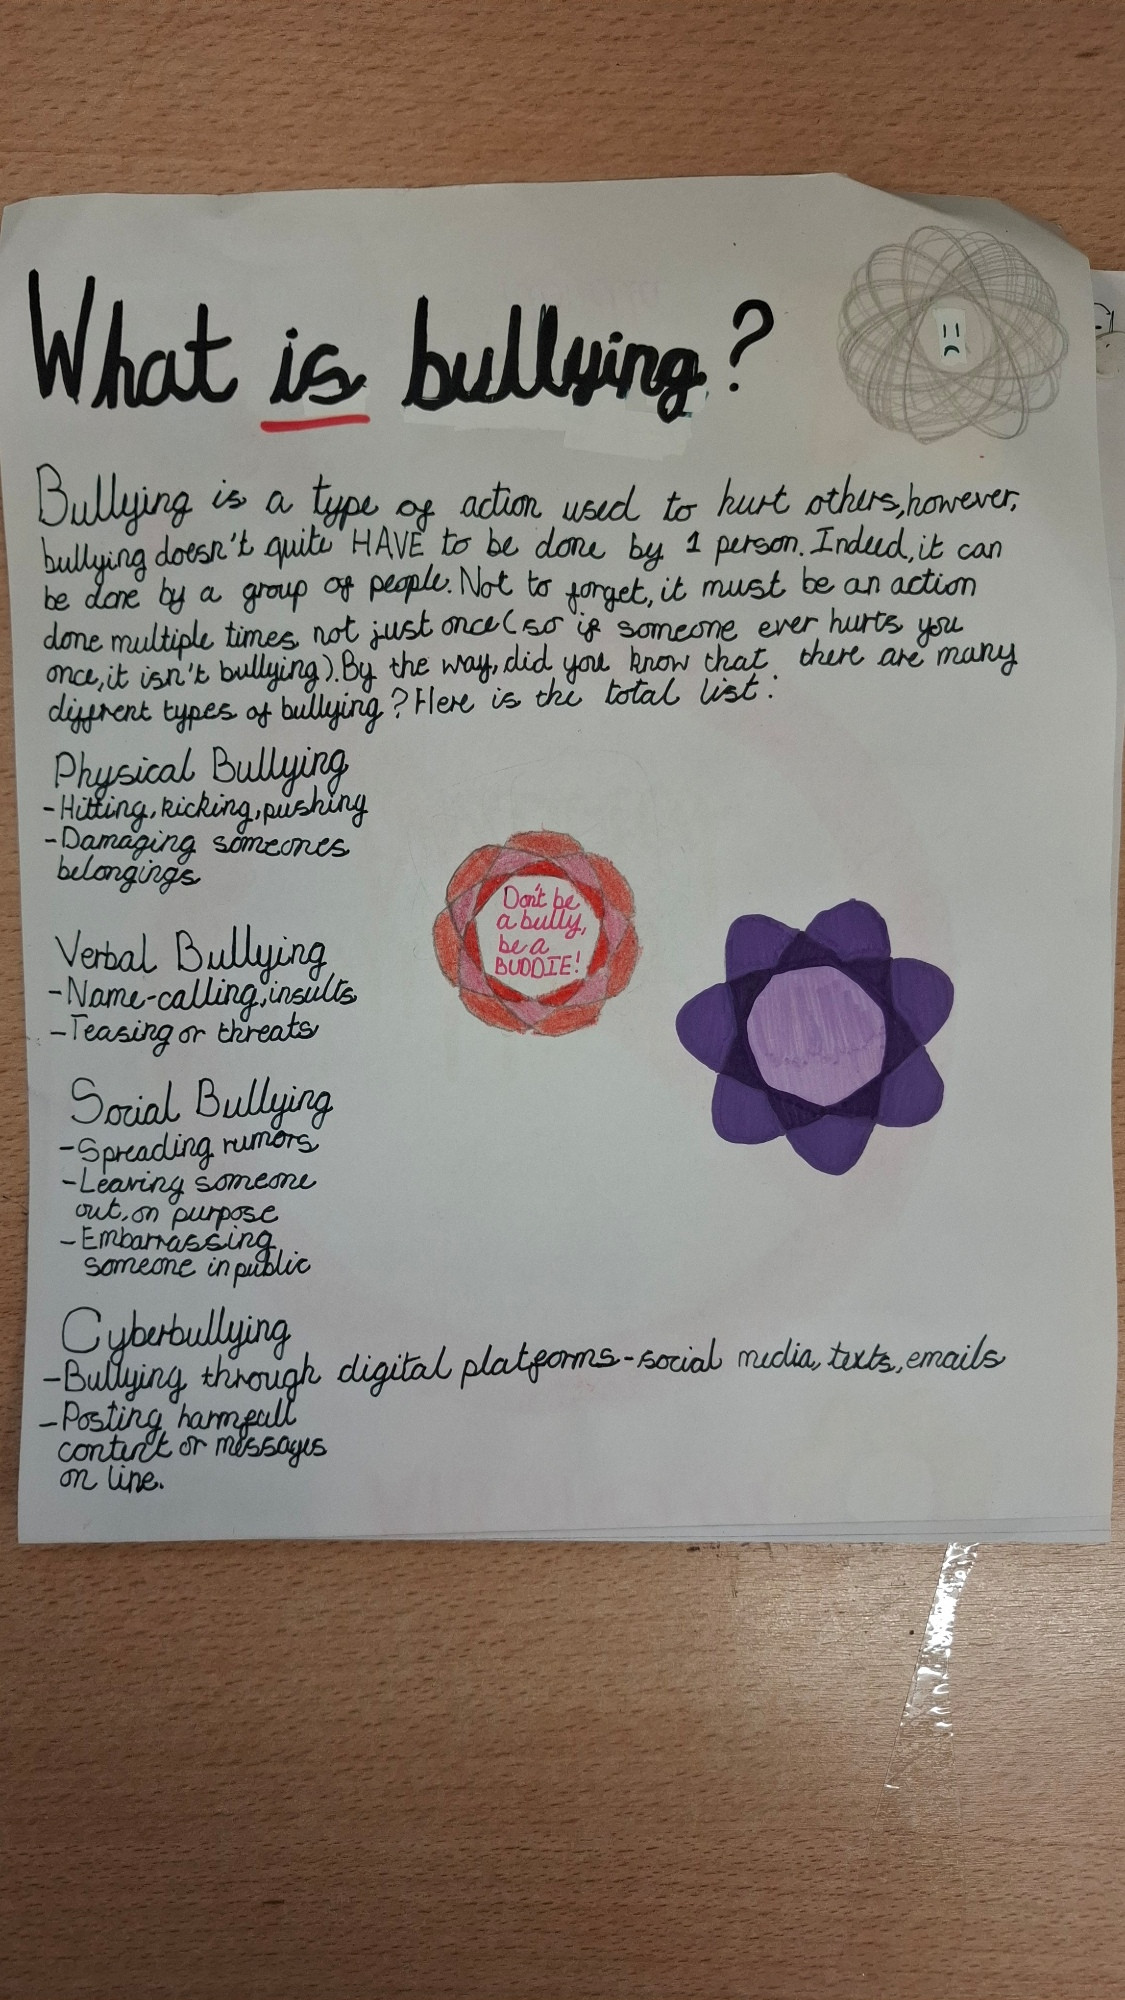 What is bullying?
Bullying is a type of action used to hurt others, however,
bullying doesn't quite HAVE to be done by 1 person. Indeed, it can
be done by a group of people. Not to forget, it must be an action
done multiple times not just once (so if someone ever hurts you
once, it isn't bullying). By the way, did you know that there are many
diffrent types of bullying? Here is the total list:
Physical Bullying
-Hitting, kicking, pushing
-Damaging someones
belongings
Don't be
a bully,
be a
BUDDIE!
Verbal Bullying
-Name-calling, insults
-Teasing or threats
Social Bullying
-Spreading rumors
-Leaving someone
out, on purpose
-Embarrassing
someone in public
Cyberbullying
-Bullying through digital platforms-social media, texts, emails
-Posting harmfull
content or messages
on line.